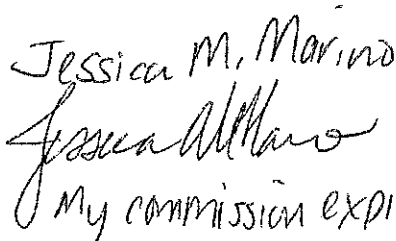 Jessica M. Marino
Jessica M Marino
My commission expi